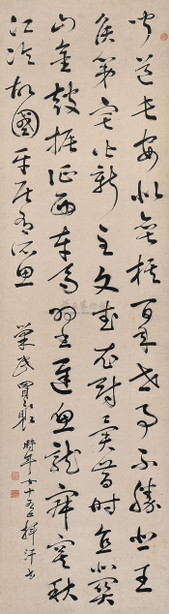 聞道長安似奕棋百年世事不勝悲王
侯第宅皆新主文武衣冠異昔時直北關
山金鼓振征西車馬羽書遲魚龍寂寞秋
江冷故國平居有所思
巢民冒襄時年十揮汗書